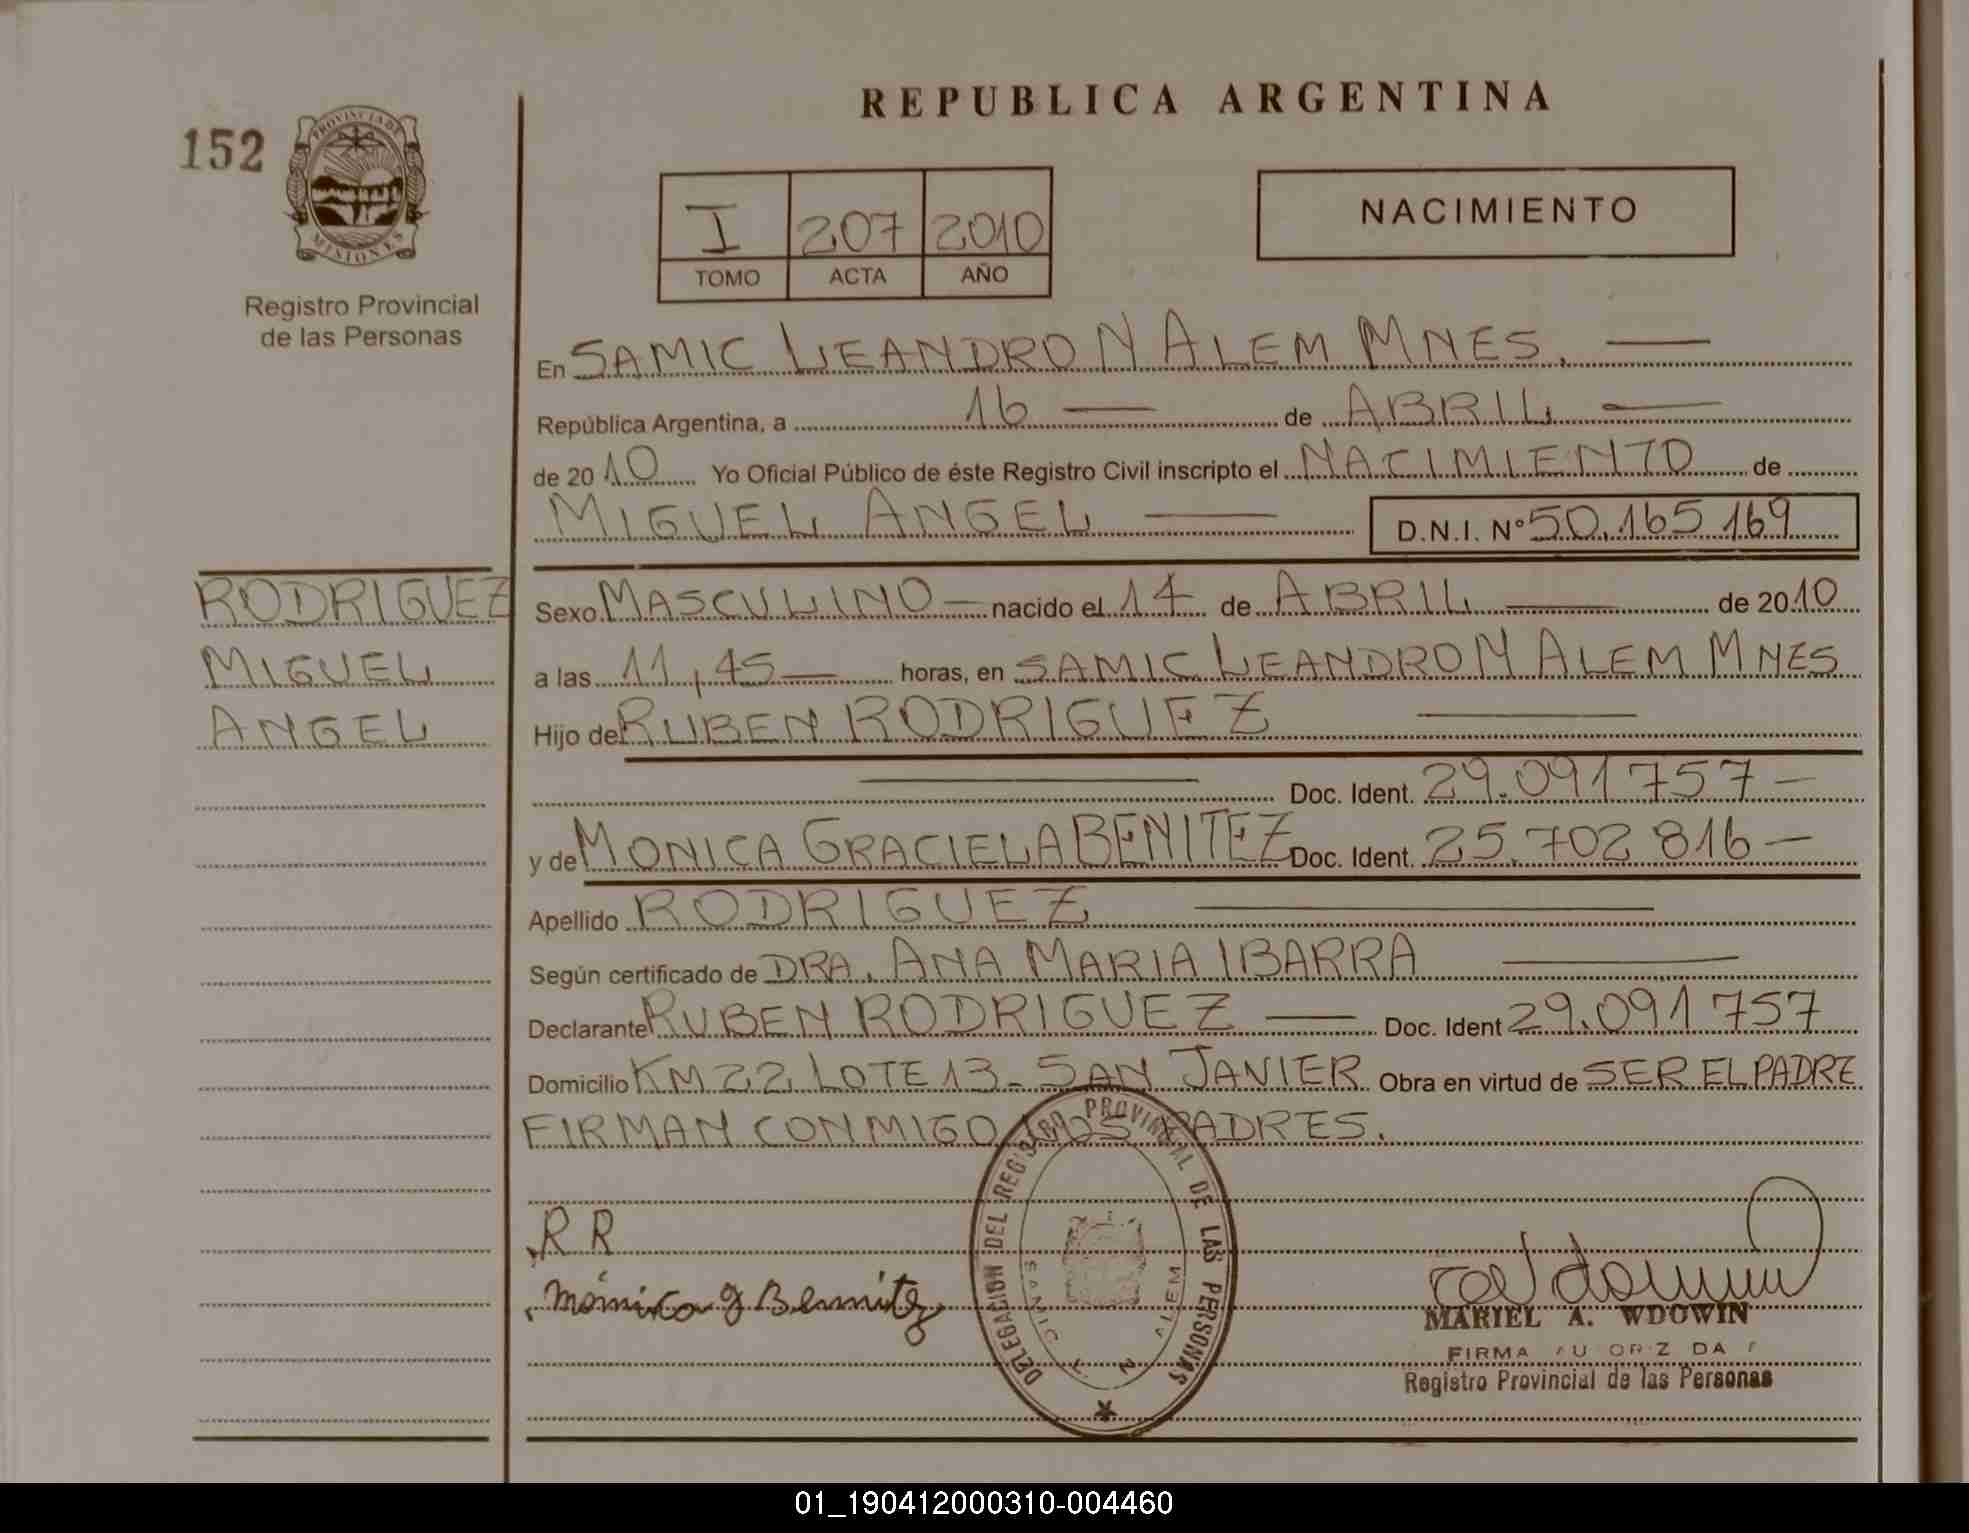 REPUBLICA ARGENTINA
152
PROVINCIA DE
MISIONES
Registro Provincial
de las Personas
I 207 2010
TOMO ACTA AÑO
NACIMIENTO
En SAMIC LEANDRO N ALEM MNES.
República Argentina, a 16 de ABRIL
de 2010 Yo Oficial Público de éste Registro Civil inscripto el NACIMIENTO de
MIGUEL ANGEL D.N.I. Nº 50.165.169
RODRIGUEZ
MIGUEL
ANGEL
Sexo MASCULINO nacido el 14 de ABRIL de 2010
a las 11,45 horas, en SAMIC LEANDRO N ALEM MNES
Hijo de RUBEN RODRIGUEZ
Doc. Ident. 29.091757
y de MONICA GRACIELA BENITEZ Doc. Ident. 25.702816
Apellido RODRIGUEZ
Según certificado de DRA. ANA MARIA IBARRA
Declarante RUBEN RODRIGUEZ Doc. Ident 29.091757
Domicilio KM 22 LOTE 13 - SAN JAVIER Obra en virtud de SER EL PADRE
FIRMAN CONMIGO LOS PADRES.
DELEGACION DEL REGISTRO PROVINCIAL DE LAS PERSONAS
SAMIC L. N. ALEM
R R
Mónica g Bennitez
MARIEL A. WDOWIN
FIRMA AUTORIZADA
Registro Provincial de las Personas
01_190412000310-004460